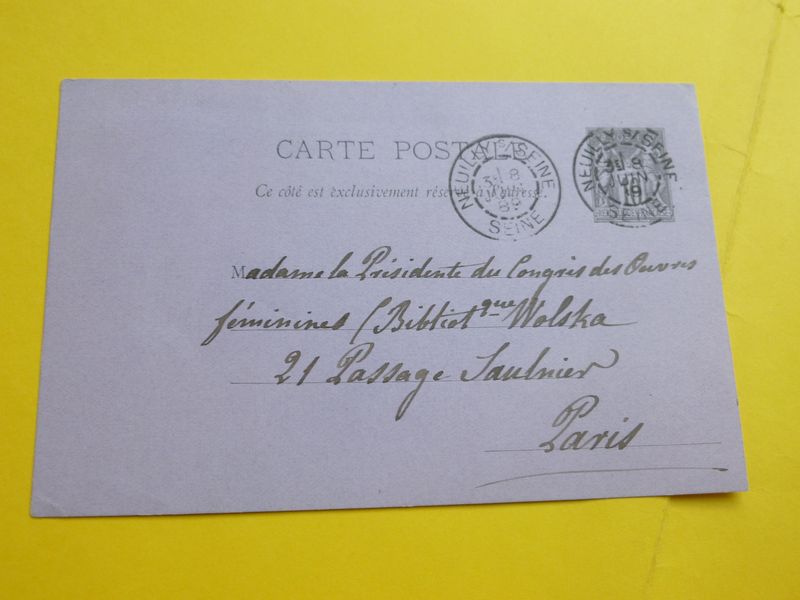 CARTE POSTALE
Ce côté est exclusivement réservé à l'adresse.
NEUILLY S/SEINE
3E 8
JUIN
89
SEINE
NEUILLY S/SEINE
3E 8
JUIN
89
SEINE
Madame la Présidente du Congrès des Œuvres
féminines (Bibliotque Wolska
21 Passage Saulnier
Paris